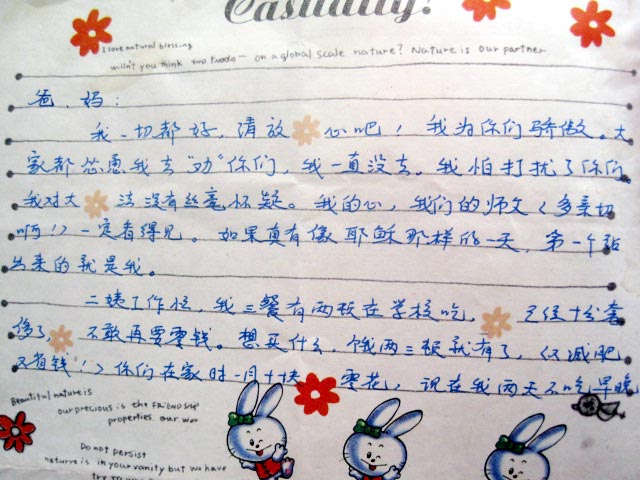 Casually!
I love natural blessing
willn't you think two twodo — on a global scale nature? Nature is our partner
爸、妈：
我一切都好，请放心吧！我为你们骄傲。大
家都怂恿我去“劝”你们，我一直没去。我怕打扰了你们。
我对大法没有丝毫怀疑。我的心，我们的师父（多亲切
啊！）一定看得见。如果真有像耶稣那样的一天，第一个站
出来的就是我。
二姨工作忙，我三餐有两顿在学校吃，已经十分奢
侈了，不敢再要零钱。想买什么，饿两三顿就有了，（又减肥
又省钱！）你们在家时一月十块零花，现在我两天不吃早晚
Beautiful nature is
our precious is the FRIENDSHIP
properties. our wor
Do not persist
nature is in your vanity but we have
try to